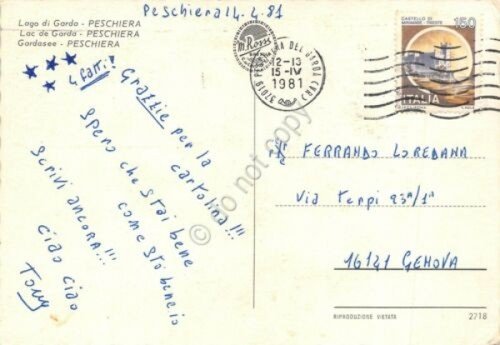 Peschiera 14.4.81
Lago di Garda - PESCHIERA
Lac de Garde - PESCHIERA
Gardasee - PESCHIERA
CASTELLO DI
MIRAMARE - TRIESTE
150
ITALIA
37019 PESCHIERA DEL GARDA (VR)
12-13
15-IV
1981
4 fatti!
Grazie per la
cartolina!!!
Spero che stai bene
come sto bene io
Scrivi ancora!!!
ciao ciao
Tony
FERRANDO LOREDANA
Via Terpi 23A/1A
16141 GENOVA
do not copy
RIPRODUZIONE VIETATA
2718